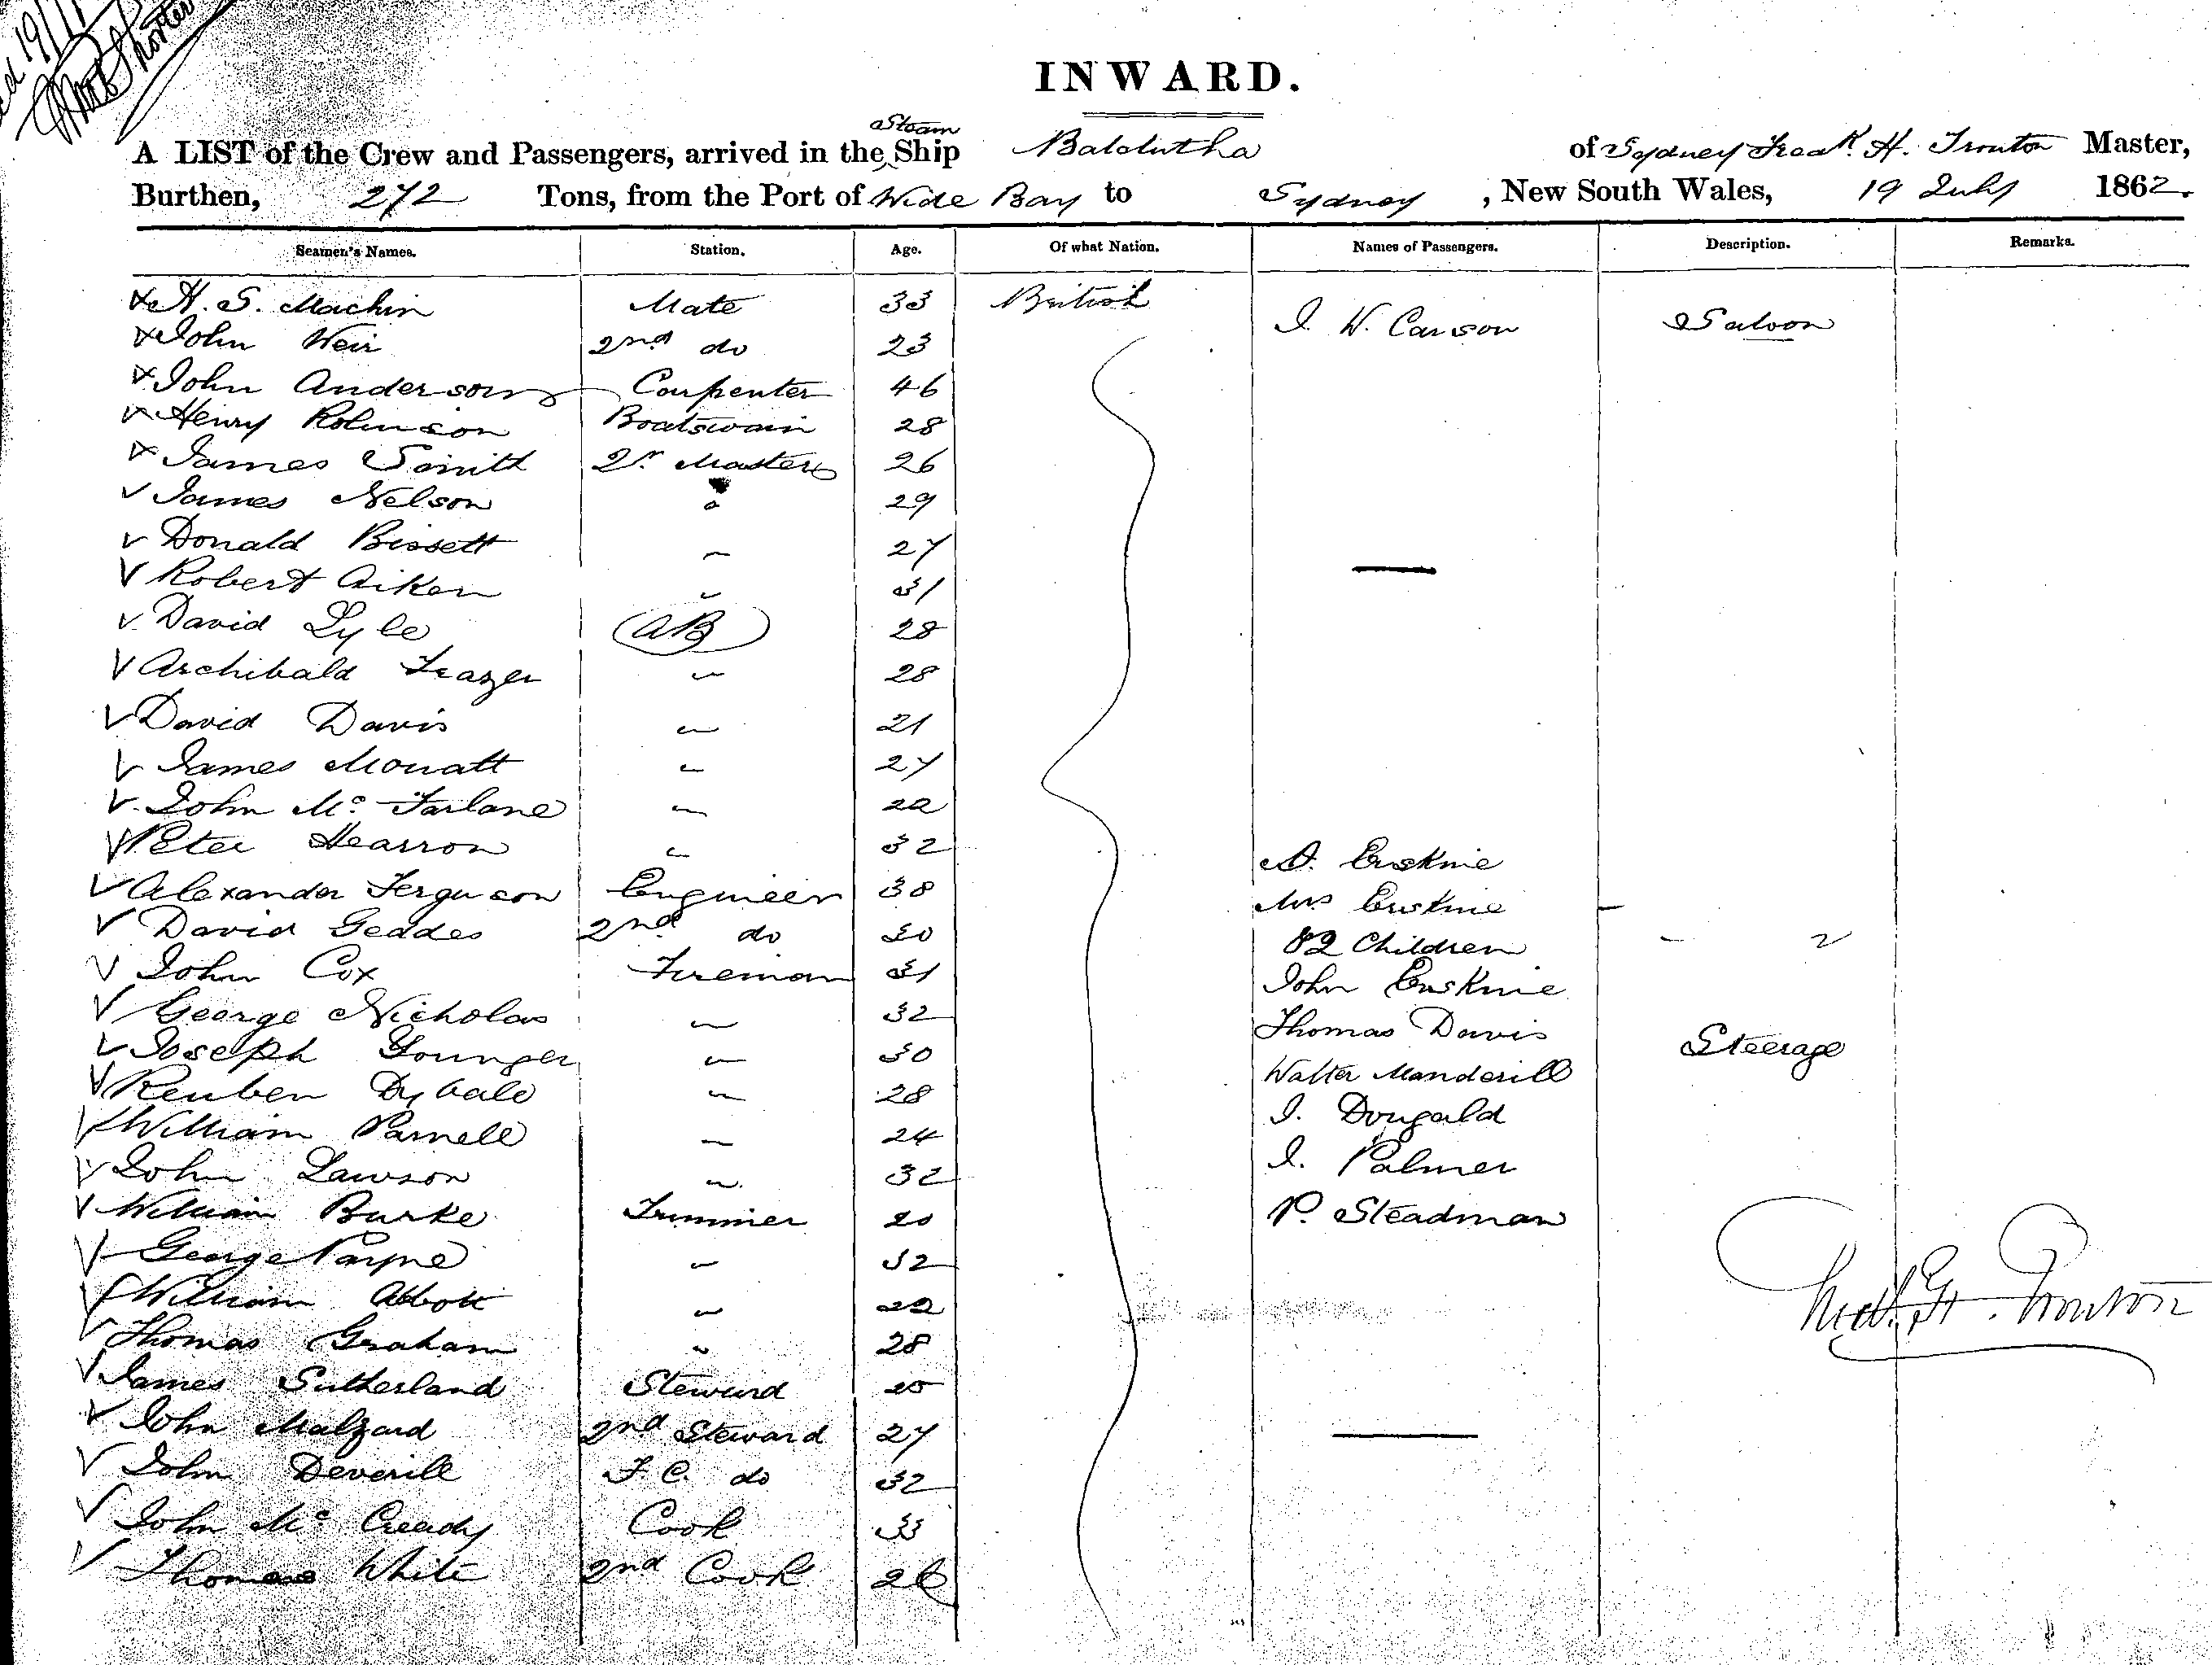 INWARD.
A LIST of the Crew and Passengers, arrived in the Steam Ship Balclutha of Sydney Fredk. H. Trouton Master,
Burthen, 272 Tons, from the Port of Wide Bay to Sydney, New South Wales, 19 July 1862.
Seamen's Names. Station. Age. Of what Nation. Names of Passengers. Description. Remarks.
H. S. Machin Mate 33 British
J. W. Carson Saloon
John Weir 2nd do 23
John Anderson Carpenter 46
Henry Robinson Boatswain 28
James Smith Qr. Master 26
James Nelson " 29
Donald Bissett " 27
Robert Aiken " 31
David Lyle AB 28
Archibald Frazer " 28
David Davis " 21
James Mouatt " 27
John Mc Farlane " 22
Peter Hearron " 32
A. Erskine
Alexander Ferguson Engineer 38
Mrs Erskine
David Geddes 2nd do 30
2 Children - 2
John Cox Fireman 31
John Erskine
George Nicholas " 32
Thomas Davis
Joseph Younger " 30
Steerage
Reuben Dybale " 28
Walter Manderill
William Parnell " 24
J. Dougald
John Lawson " 32
J. Palmer
William Burke Trimmer 20
P. Steadman
George Payne " 32
William Abbott " 22
Fredk. H. Trouton
Thomas Graham " 28
James Sutherland Steward 25
John Malzard 2nd Steward 27
John Deverill F C. do 32
John Mc Cready Cook 33
Thomas White 2nd Cook 26